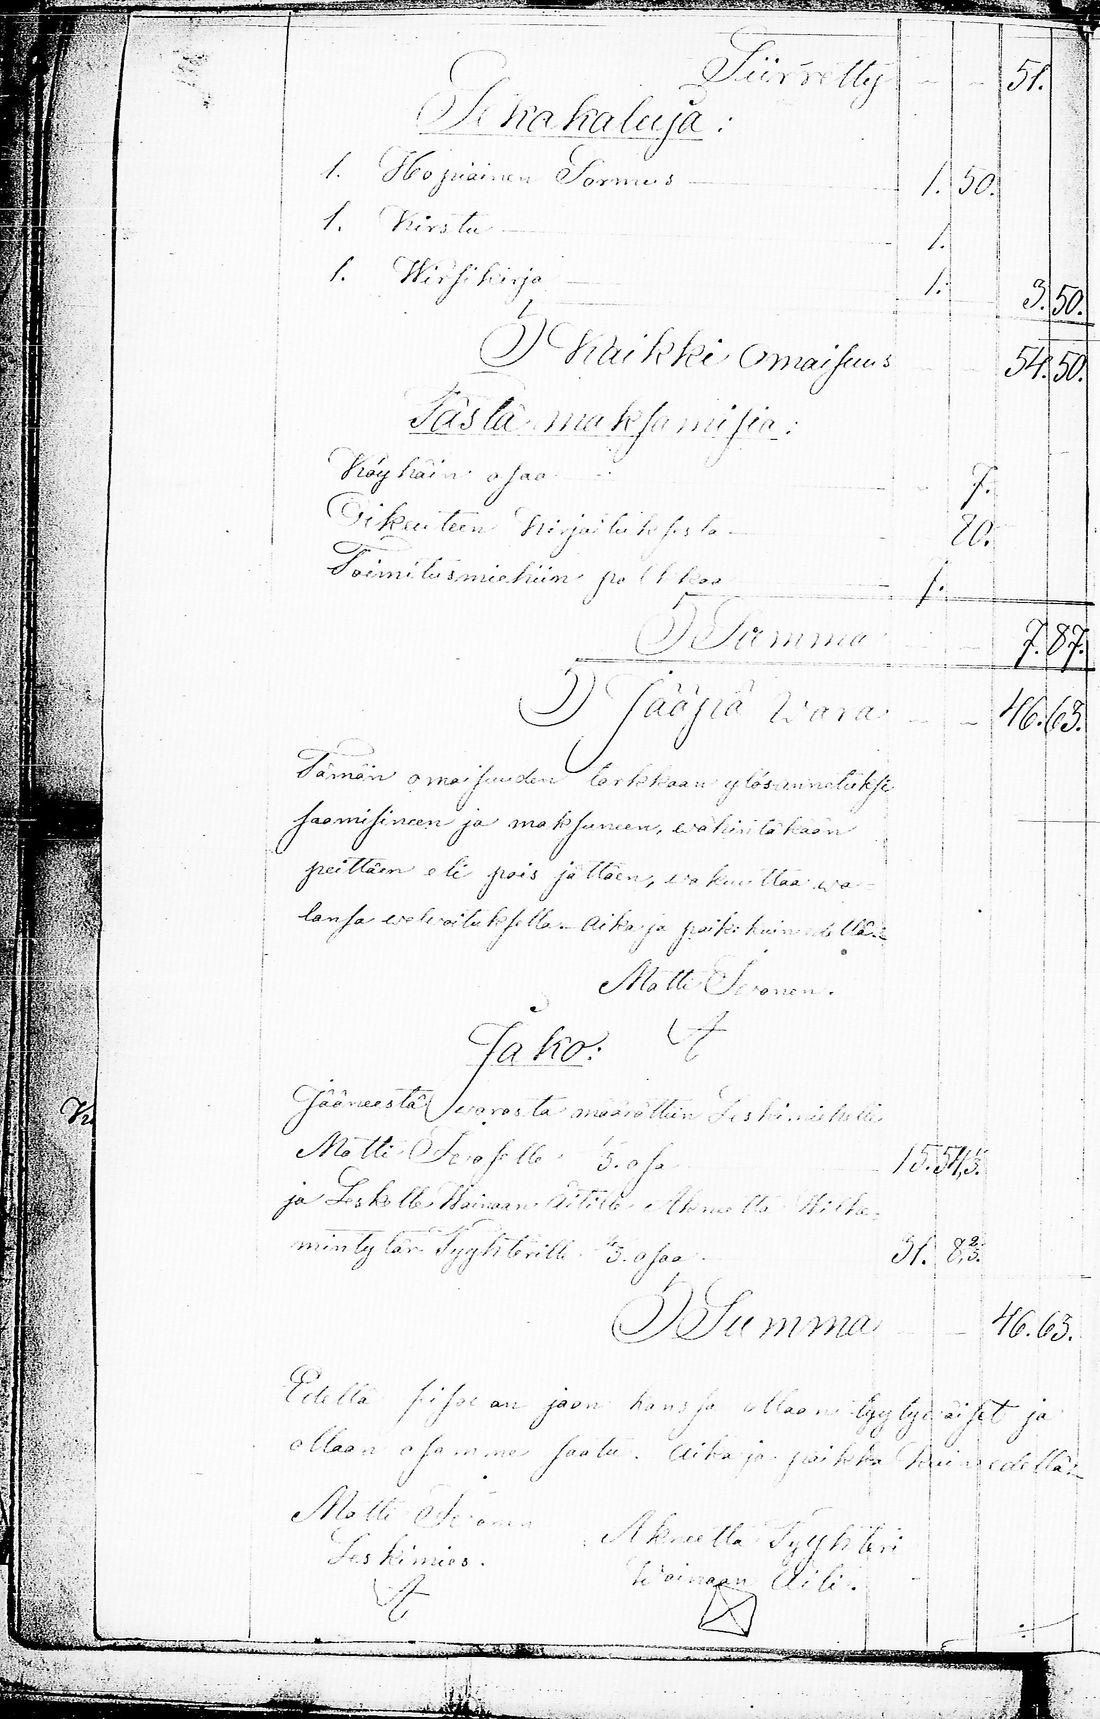 Siirretty - - 51.
Sekakaluja:
1. Hopiainen Sormus 1. 50.
1. Kirstu 1.
1. Wirsikirja 1. 3. 50.
Kaikki Omaisuus - - 54. 50.
Tästä maksamisia:
Köyhäin osaa - 7.
Oikeuteen Kirjoituksesta 80.
Toimitusmiehiin palkkaa
Summa - - 7. 87.
Jääpiä Wara - - 46. 63.
Tämän omaisuuden tarkkaan ylösannetuksi
saamisineen ja maksuneen, wähintäkään
peittäen eli pois jättäen, wakuuttaa wa-
lansa welwoituksella. Aika ja paikka kuin edellä.
Matti
Jako:
Jääneestä warasta määrättiin Leskimiehelle
Matti 1/3. osa 15. 54,1/3.
ja Leskelle Wainaan Äitille
Tyyhterille 2/3. osaa 31. 8,2/3.
Summa - - 46. 63.
Edellä seisowan jaon kanssa ollaan tyytywäiset ja
ollaan osamme saatu. Aika ja paikka kuin edellä.
Matti
Leskimies. Tyyhteri
Wainaan Äiti.